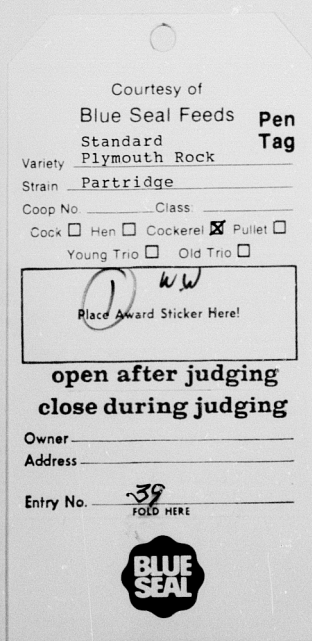 Courtesy of
Blue Seal Feeds
Pen
Tag
Standard
Variety Plymouth Rock
Strain Partridge
Coop No. Class:
Cock ☐ Hen ☐ Cockerel ☒ Pullet ☐
Young Trio ☐ Old Trio ☐
1 WW
Place Award Sticker Here!
open after judging
close during judging
Owner
Address
Entry No. 39
FOLD HERE
BLUE
SEAL